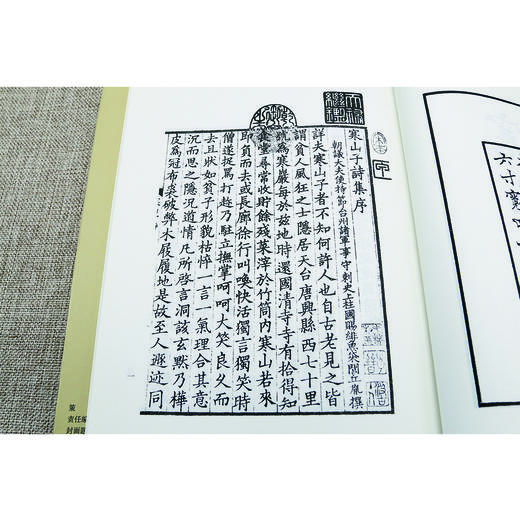 天禄繼鑑
寒山子詩集序
朝議大夫使持節台州諸軍事守刺史上柱國賜緋魚袋閭丘胤撰
詳夫寒山子者不知何許人也自古老見之皆
謂貧人風狂之士隱居天台唐興縣西七十里
號為寒巖每於兹地時還國清寺寺有拾得知
堂尋常收貯餘殘菜滓於竹筒内寒山若來
即負而去或長廊徐行叫喚快活獨言獨笑時
僧遂捉罵打趁乃駐立撫掌呵呵大笑良久而
去且狀如貧子形貌枯悴一言一氣理合其意
沉而思之隱況道情凡所啓言洞該玄默乃樺
皮為冠布裘破弊木屐履地是故至人遯迹同
一
六寸
策
责任编
封面题